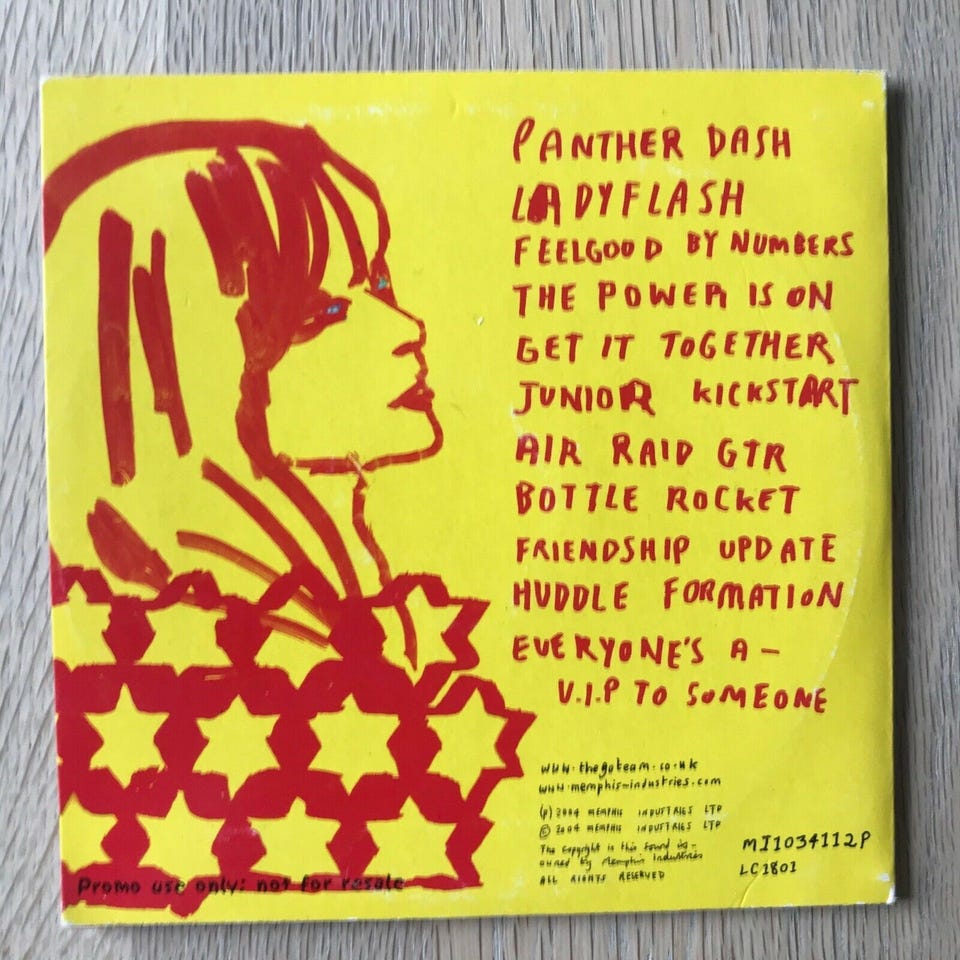 PANTHER DASH
LADYFLASH
FEELGOOD BY NUMBERS
THE POWER IS ON
GET IT TOGETHER
JUNIOR KICKSTART
AIR RAID GTR
BOTTLE ROCKET
FRIENDSHIP UPDATE
HUDDLE FORMATION
EVERYONE'S A –
V.I.P TO SOMEONE
www.thegoteam.co.uk
www.memphis-industries.com
(p) 2004 MEMPHIS INDUSTRIES LTD
© 2004 MEMPHIS INDUSTRIES LTD
The copyright in this sound is-
owned by Memphis Industries
ALL RIGHTS RESERVED
MI1034112P
LC1801
Promo use only: not for resale